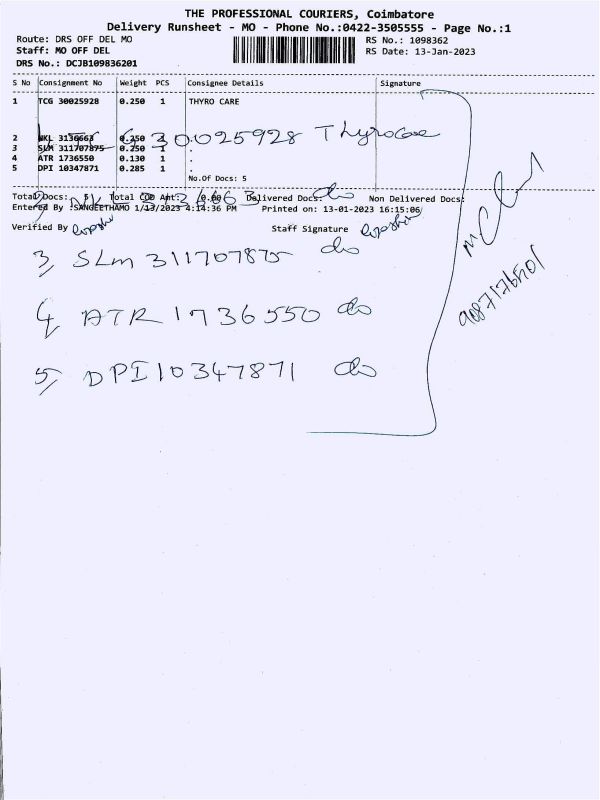 THE PROFESSIONAL COURIERS, Coimbatore
Delivery Runsheet - MO - Phone No.:0422-3505555 - Page No.:1
Route: DRS OFF DEL MO RS No.: 1098362
Staff: MO OFF DEL RS Date: 13-Jan-2023
DRS No.: DCJB109836201
S No Consignment No Weight PCS Consignee Details Signature
1 TCG 30025928 0.250 1 THYRO CARE
30025928 Thyrocare
2 3136663 0.250 1 .
3 SLM 311707875 0.250 1 .
4 ATR 1736550 0.130 1 .
5 DPI 10347871 0.285 1 .
No.Of Docs: 5
Total Docs: 5 Total COD Amt: 0.00 Delivered Docs: do Non Delivered Docs:
Entered By :SANGEETHAMO 1/13/2023 4:14:36 PM Printed on: 13-01-2023 16:15:06
Verified By Staff Signature
3, SLM 311707875 do
4, ATR 1736550 do
5, DPI 10347871 do